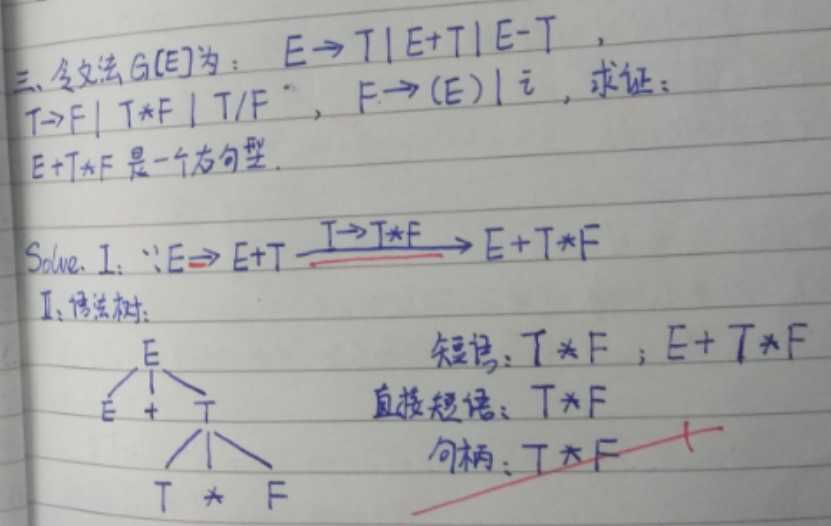 三、令文法G[E]为: E→T|E+T|E-T ,
T→F| T*F | T/F , F→(E)| i , 求证:
E+T*F 是一个右句型.
Solve. I: ∵E⇒ E+T T→T*F E+T*F
II: 语法树:
E
E + T
T * F
短语: T*F ; E+T*F
直接短语: T*F
句柄: T*F